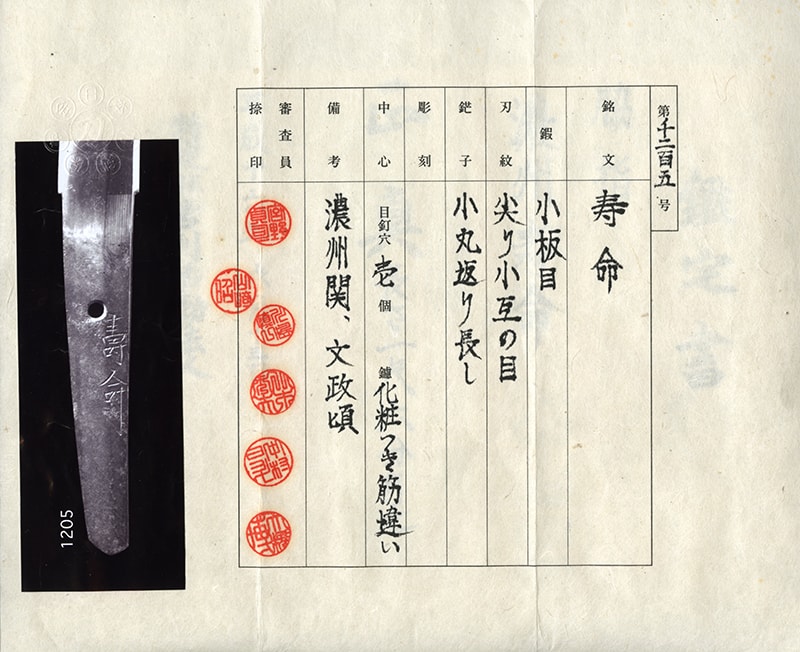 第千二百五号
銘文 寿命
鍜 小板目
刃紋 尖り小互の目
鋩子 小丸返り長し
彫刻
中心 目釘穴 壱 個 鑢 化粧つき筋違い
備考 濃州関、文政頃
審査員
捺印
壽命
1205